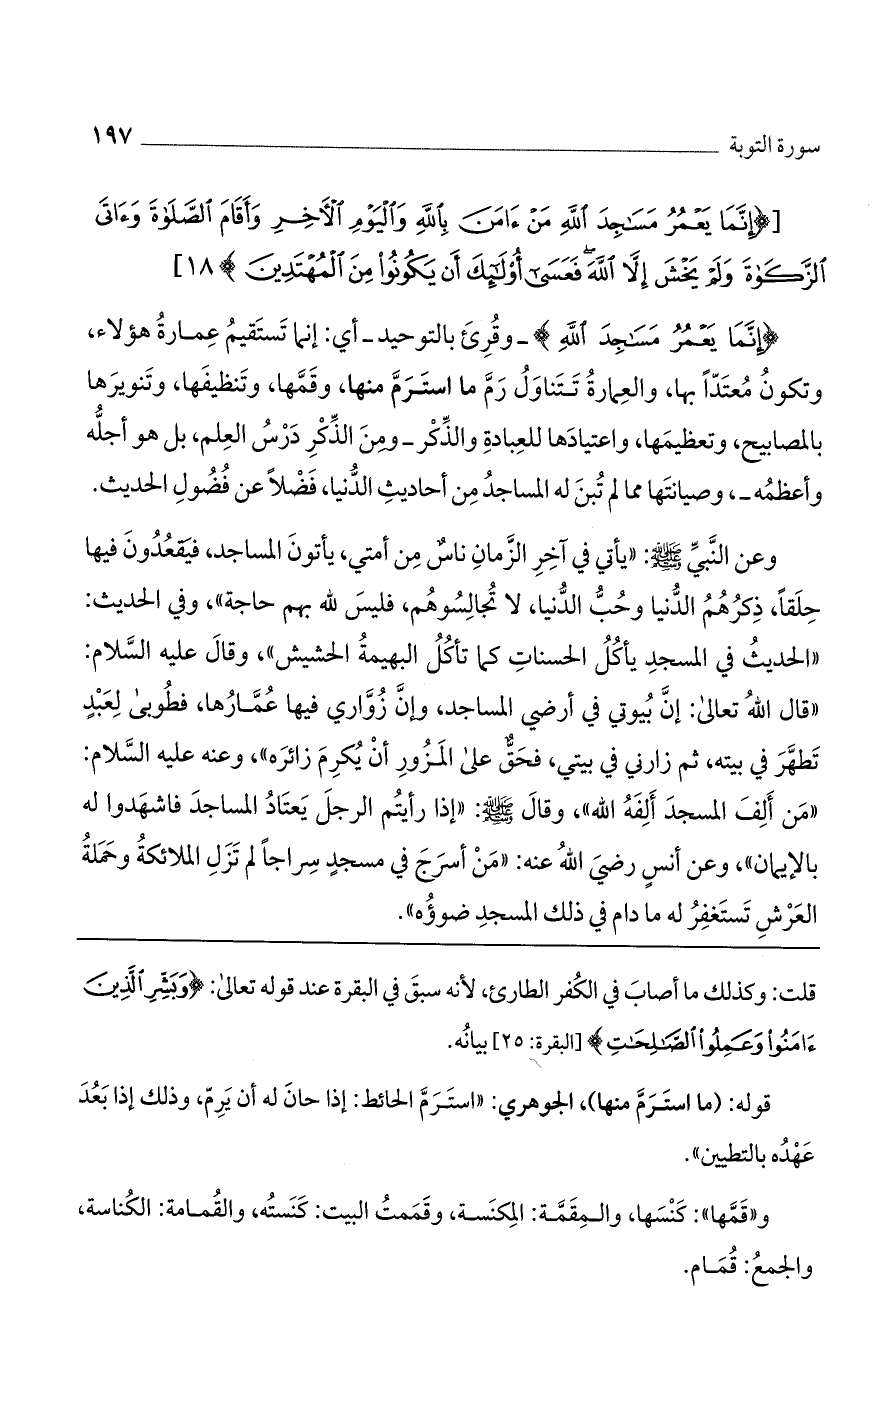 سورة التوبة ١٩٧
[﴿إِنَّمَا يَعْمُرُ مَسَٰجِدَ ٱللَّهِ مَنْ ءَامَنَ بِٱللَّهِ وَٱلْيَوْمِ ٱلْأَخِرِ وَأَقَامَ ٱلصَّلَوٰةَ وَءَاتَى
ٱلزَّكَوٰةَ وَلَمْ يَخْشَ إِلَّا ٱللَّهَ ۖ فَعَسَىٰٓ أُو۟لَٰٓئِكَ أَن يَكُونُوا۟ مِنَ ٱلْمُهْتَدِينَ﴾ ١٨]
﴿إِنَّمَا يَعْمُرُ مَسَٰجِدَ ٱللَّهِ﴾ ـ وقُرِئَ بالتوحيد ـ أي: إنما تَستَقيمُ عِمارةُ هؤلاء،
وتكونُ مُعتَدّاً بها، والعِمارةُ تَتَناوَلُ رَمَّ ما استَرَمَّ منها، وقَمَّها، وتَنظيفَها، وتَنويرَها
بالمصابيح، وتعظيمَها، واعتيادَها للعِبادةِ والذِّكْر ـ ومِنَ الذِّكْرِ دَرْسُ العِلم، بل هو أجلُّه
وأعظمُه ـ، وصيانتَها مما لم تُبنَ له المساجدُ مِن أحاديثِ الدُّنيا، فَضْلاً عن فُضُولِ الحديث.
وعن النَّبيِّ ﷺ: «يأتي في آخِرِ الزَّمانِ ناسٌ مِن أمتي، يأتونَ المساجد، فيَقعُدُونَ فيها
حِلَقاً، ذِكرُهُمُ الدُّنيا وحُبُّ الدُّنيا، لا تُجالِسُوهُم، فليسَ لله بهم حاجة»، وفي الحديث:
«الحديثُ في المسجدِ يأكُلُ الحسناتِ كما تأكُلُ البهيمةُ الحشيش»، وقالَ عليه السَّلام:
«قال اللهُ تعالىٰ: إنَّ بُيوتي في أرضي المساجد، وإنَّ زُوَّاري فيها عُمَّارُها، فطُوبىٰ لِعَبْدٍ
تَطهَّرَ في بيته، ثم زارني في بيتي، فحَقٌّ علىٰ المَزُورِ أنْ يُكرِمَ زائرَه»، وعنه عليه السَّلام:
«مَن أَلِفَ المسجدَ أَلِفَهُ الله»، وقالَ ﷺ: «إذا رأيتُم الرجلَ يَعتَادُ المساجدَ فاشهَدوا له
بالإيمان»، وعن أنسٍ رضيَ اللهُ عنه: «مَنْ أسرَجَ في مسجدٍ سِراجاً لم تَزَلِ الملائكةُ وحَمَلةُ
العَرْشِ تَستَغفِرُ له ما دام في ذلك المسجدِ ضوؤُه».
قلت: وكذلك ما أصابَ في الكُفر الطارئ، لأنه سبقَ في البقرة عند قوله تعالىٰ: ﴿وَبَشِّرِ ٱلَّذِينَ
ءَامَنُوا۟ وَعَمِلُوا۟ ٱلصَّٰلِحَٰتِ﴾ [البقرة: ٢٥] بيانُه.
قوله: (ما استَرَمَّ منها)، الجوهري: «استَرَمَّ الحائط: إذا حانَ له أن يَرِمّ، وذلك إذا بَعُدَ
عَهْدُه بالتطيين».
و«قَمَّها»: كَنْسَها، والمِقَمَّة: المِكنَسة، وقَمَمتُ البيت: كَنَستُه، والقُمامة: الكُناسة،
والجمعُ: قُمَام.